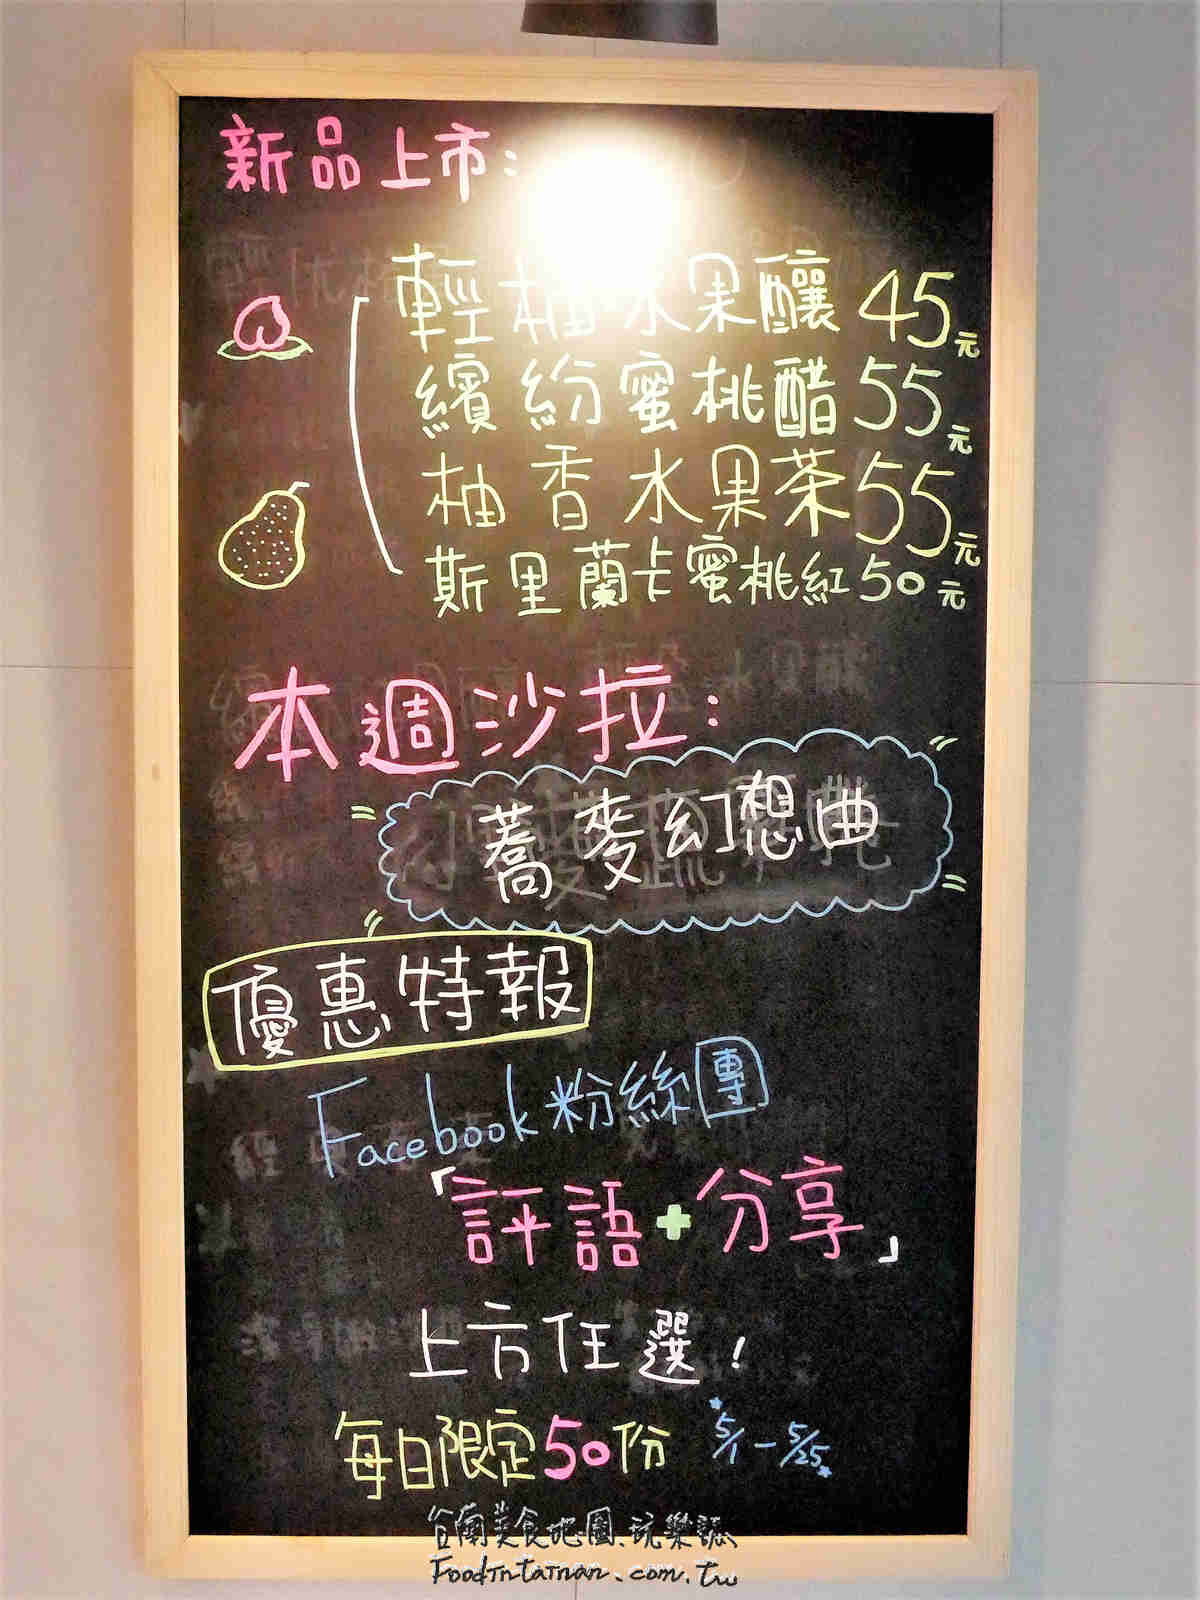 新品上市:
輕柚水果釀 45元
繽紛蜜桃醋 55元
柚香水果茶 55元
斯里蘭卡蜜桃紅 50元
本週沙拉:
蕎麥幻想曲
優惠特報
Facebook粉絲團
「評語+分享」
上方任選!
每日限定50份 *5/1-5/25*
台蘭美食地圖.玩樂誌
FoodInTainan.com.tw